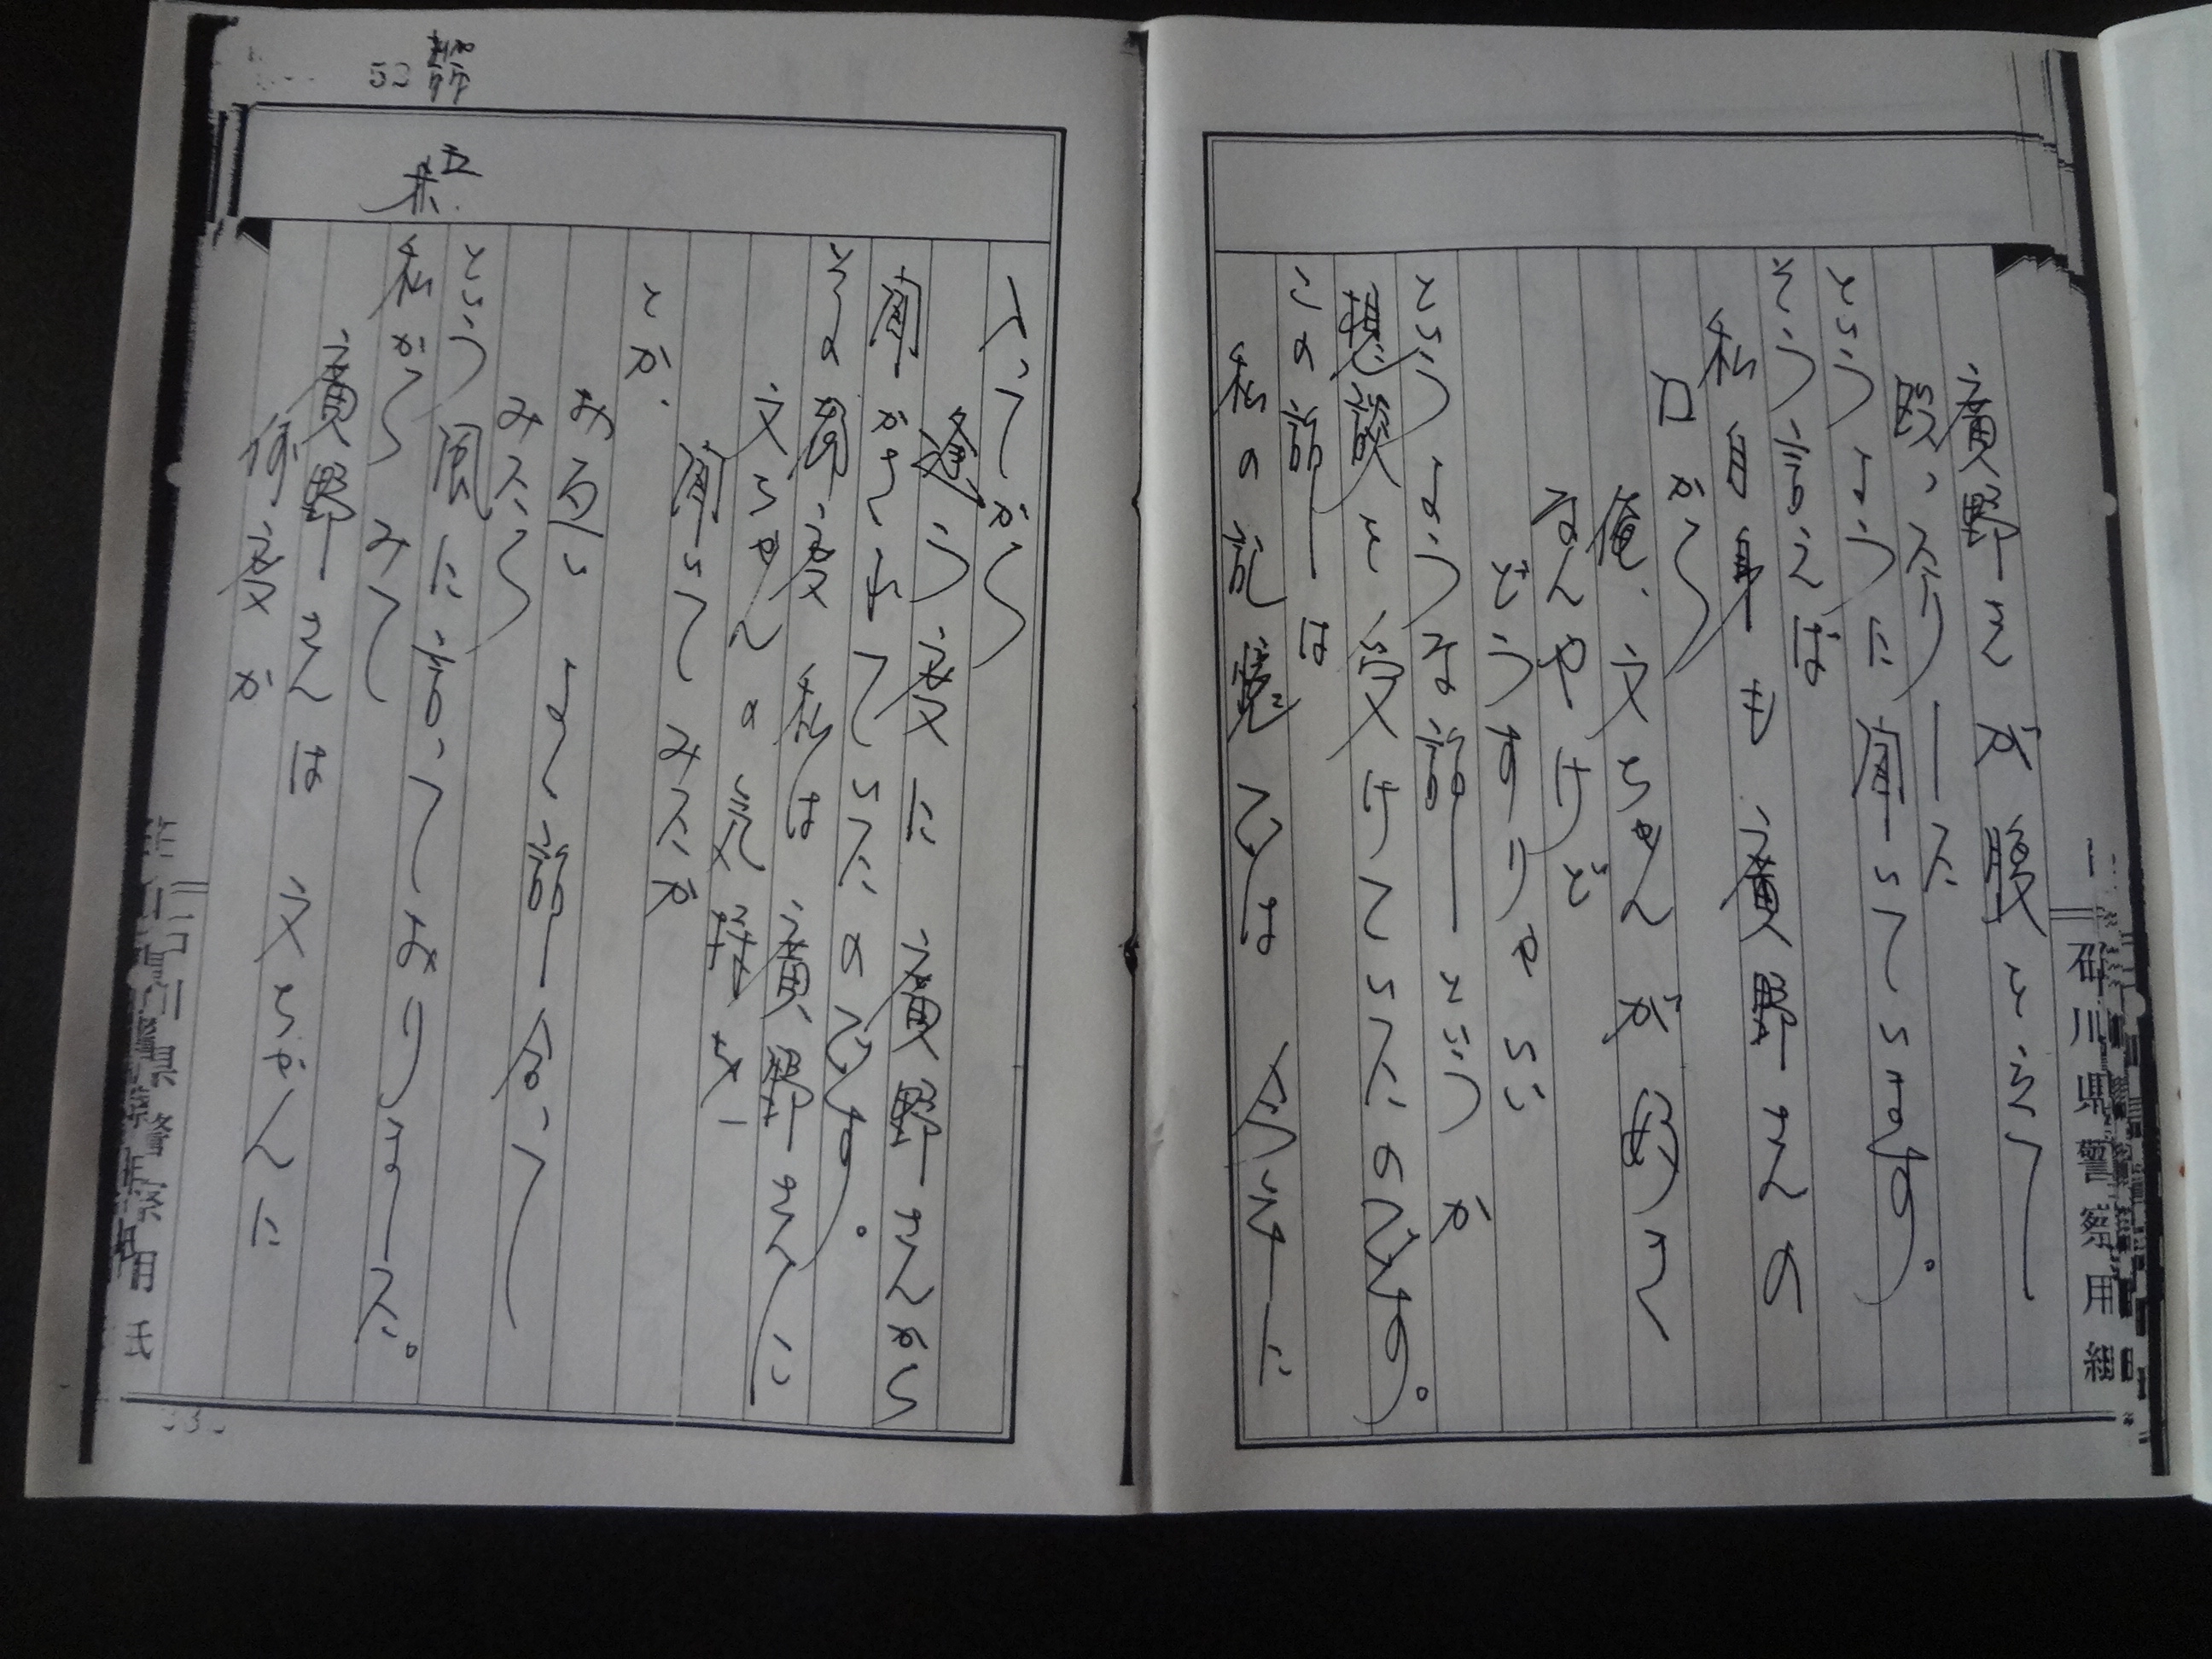 廣野さんが腹を立て
殴ったりした
というように聞いています。
そう言えば
私自身も廣野さんの
口から
俺、文ちゃんが好き
なんやけど
どうすりゃいい
というような話しというか
相談を受けていたのです。
この話しは
私の記憶では 今年に
石川県警察用紙
入ってから
逢う度に 廣野さんから
聞かされていたのです。
その都度 私は 廣野さんに
文ちゃんの気持ち
聞いてみたか
とか、
お互いよく話し合って
みたら
という風に言っておりました。
私からみて
廣野さんは 文ちゃんに
何度か
石川県警察用紙